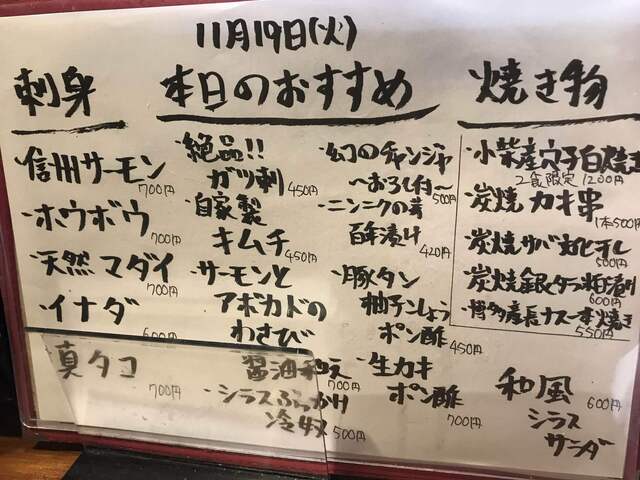 11月19日(火)
刺身
信州サーモン
700円
・ホウボウ
700円
・天然マダイ
700円
・イナダ
600円
真タコ
700円
本日のおすすめ
・絶品!!
ガツ刺
450円
・自家製
キムチ
450円
・サーモンと
アボカドの
わさび
醤油和え
700円
・シラスぶっかけ
冷奴
500円
・幻のチャンジャ
〜おろし付〜
500円
・ニンニクの芽
百年漬け
420円
・豚タン
柚子こしょう
ポン酢
450円
・生カキ
ポン酢
700円
焼き物
・小柴産穴子白焼き
2食限定 1200円
・炭焼カキ串
1本500円
・炭焼サバ灯火干し
500円
・炭焼銀ダラ粕漬け
600円
・博多産長ナス一本焼き
550円
和風
シラス
サラダ
600円